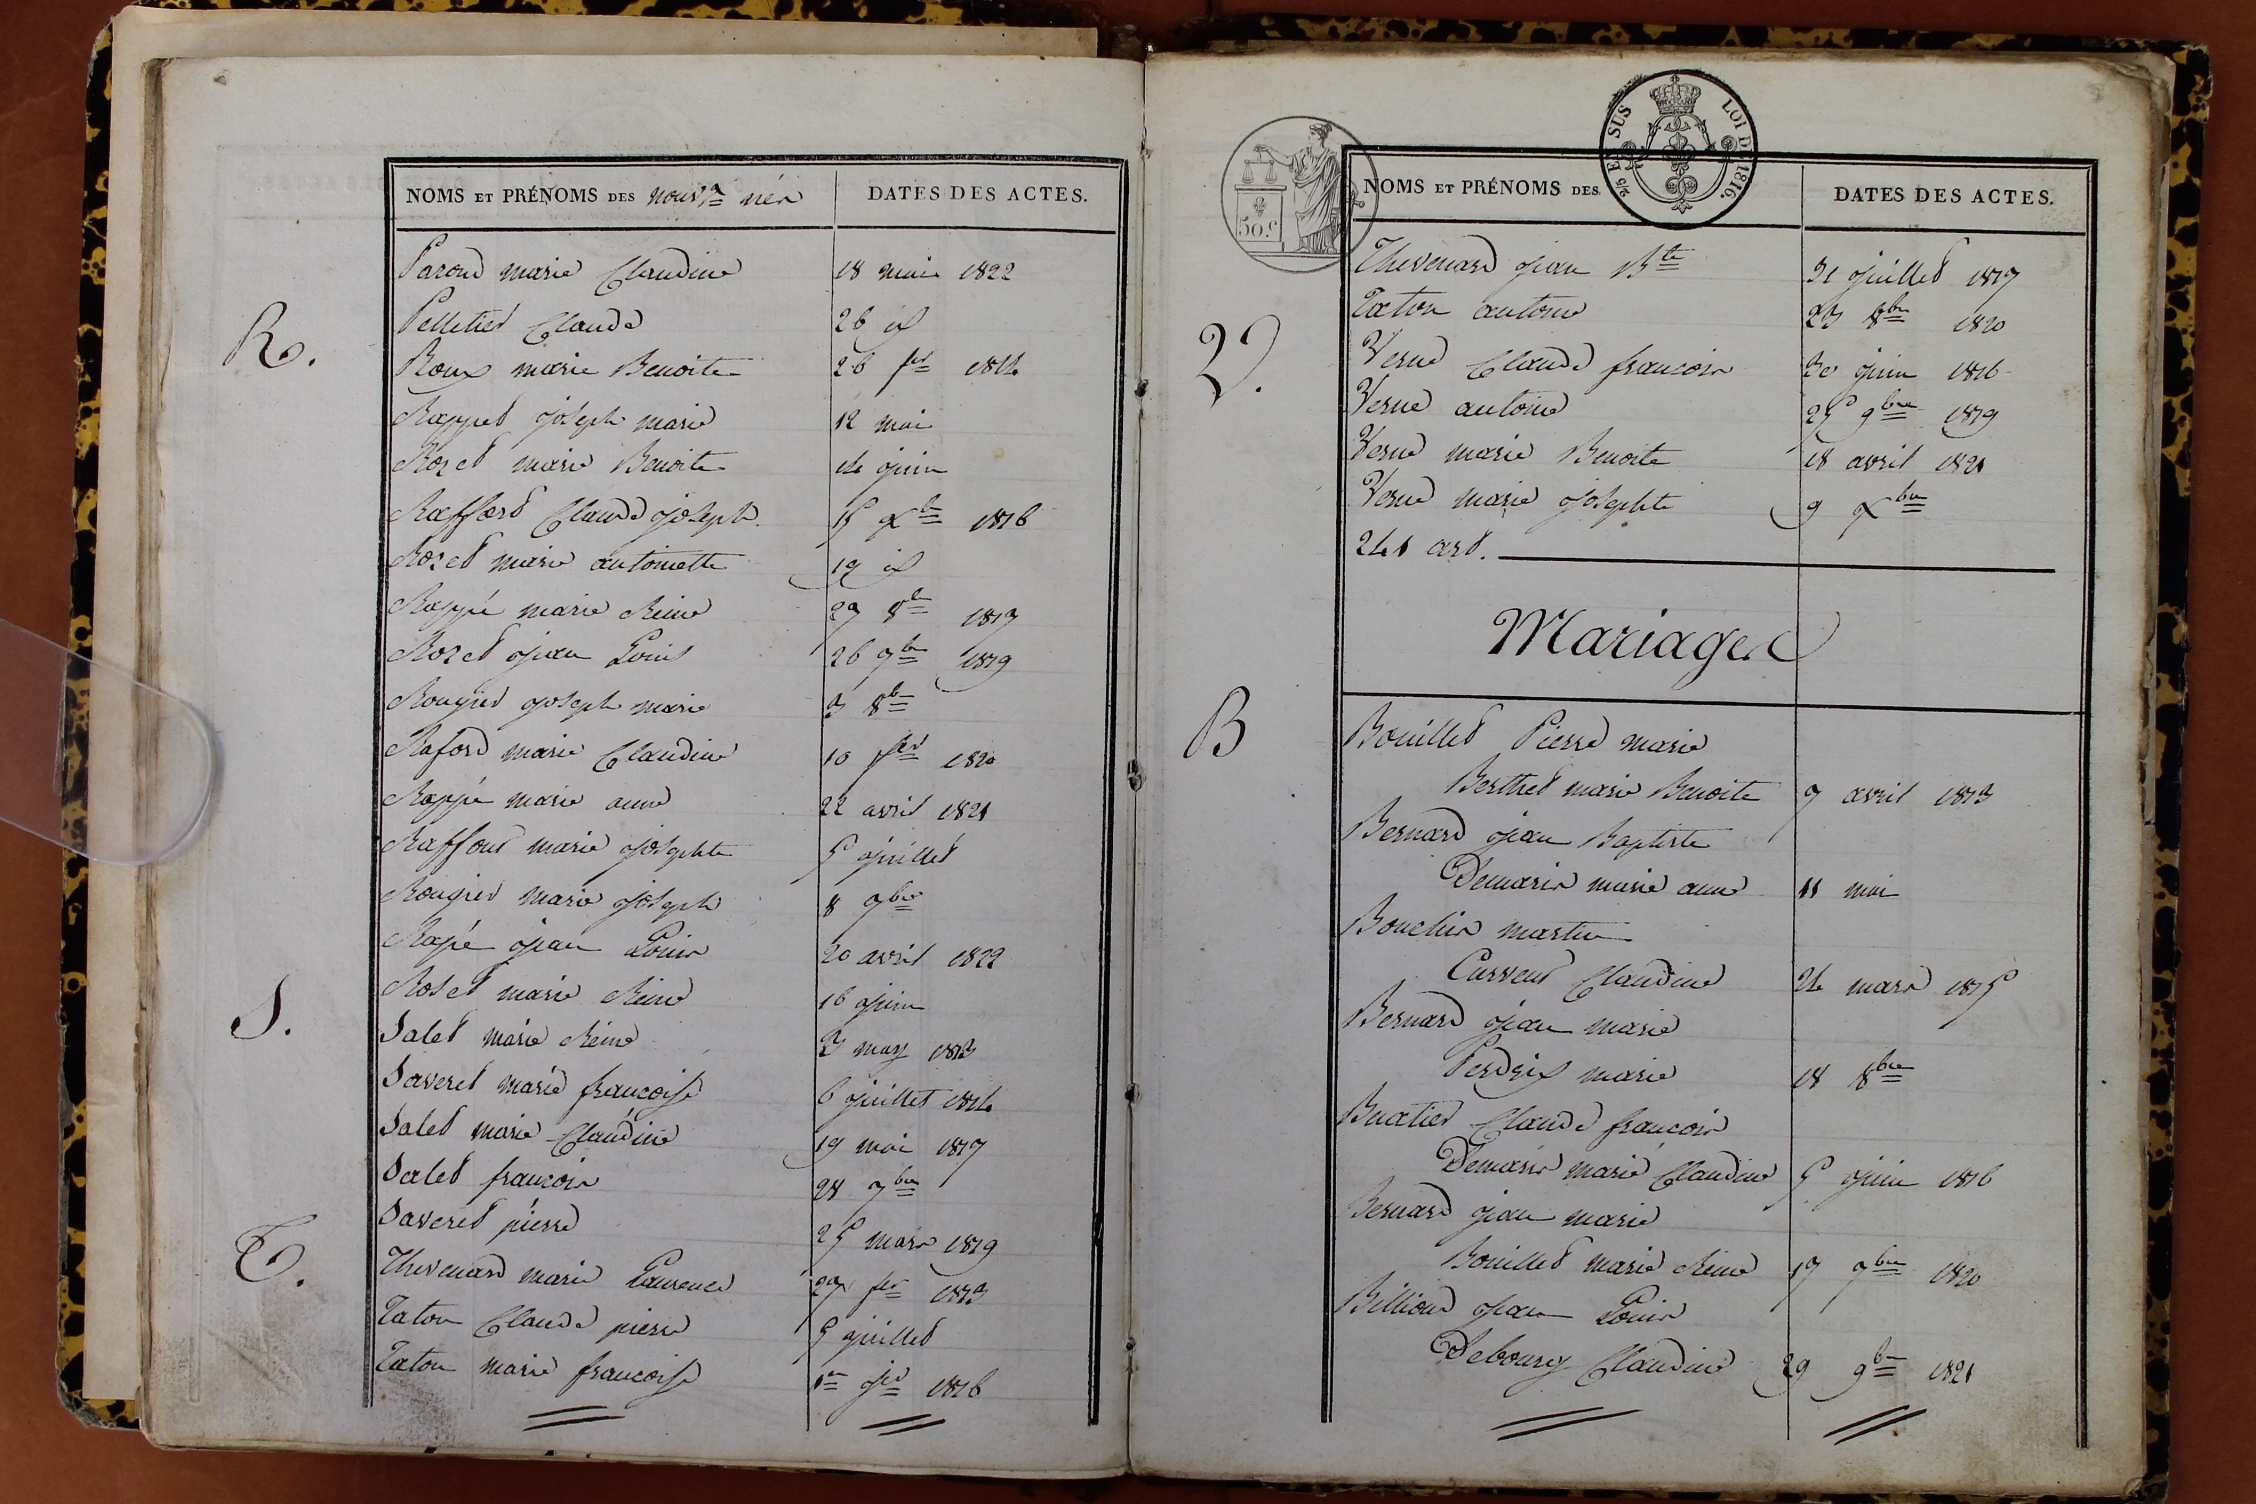 NOMS ET PRÉNOMS DES nouv.x nés DATES DES ACTES.
Paroud marie Claudine 18 mai 1822
Pelletier Claude 26 id
R.
Roux marie Benoite 26 fer 1814
Rappet joseph marie 12 mai
Rozet marie Benoite 14 juin
Rafford Claude joseph 15 xbre 1816
Rozet marie antoinette 19 id
Rappé marie Reine 27 8bre 1817
Rozet jean Louis 26 7bre 1819
Rougier joseph marie 3 8bre
Raford marie Claudine 10 fer 1820
Rappé marie anne 22 avril 1821
Raffour marie josephte 5 juillet
Rougier marie joseph 8 7bre
Rapé jean Louis 20 avril 1822
Roset marie Reine 16 juin
S.
Salet marie Reine 3 may 1813
Saveret marie françoise 6 juillet 1814
Salet marie Claudine 19 mai 1817
Salet françois 28 7bre
Saveret pierre 25 mars 1819
T.
Thevenard marie Laurence 27 fer 1813
Taton Claude pierre 5 juillet
Taton marie françoise 1er jer 1816
LOI DE 1816.
EN SUS
50 c
NOMS ET PRÉNOMS DES DATES DES ACTES.
Thevenard jean Bte 31 juillet 1817
Taton antoine 23 8bre 1820
V.
Verne Claude françois 30 juin 1816
Verne antoine 25 9bre 1819
Verne marie Benoite 18 avril 1821
Verne marie josephte 9 xbre
241 art.
Mariages
B
Bouillet Pierre marie
Berthet marie Benoite 7 avril 1813
Bernard jean Baptiste
Demaris marie anne 11 mai
Bouchis martin
Curveur Claudine 24 mars 1815
Bernard jean marie
Perdrix marie 18 8bre
Buatier Claude françois
Demaris marie Claudine 5 juin 1816
Bernard jean marie
Bouillet marie Reine 17 7bre 1820
Billioud jean Louis
Debourg Claudine 29 9bre 1821